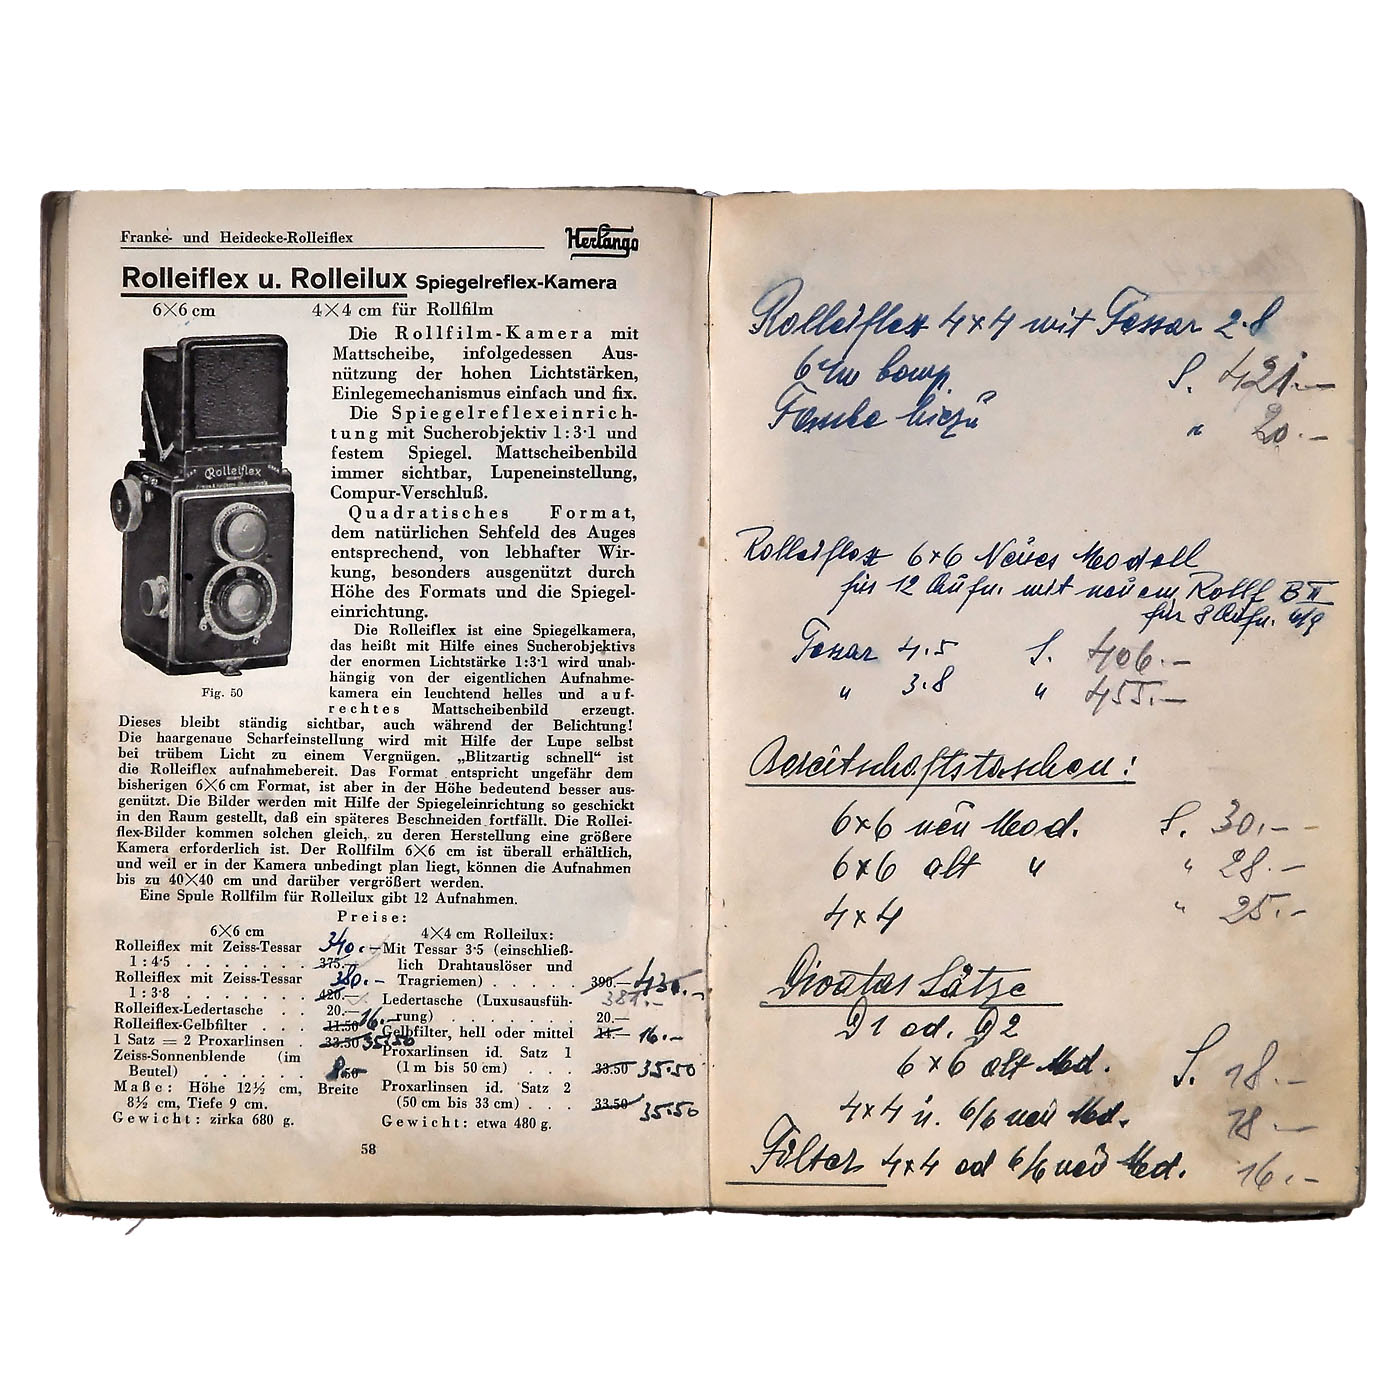 Franke- und Heidecke-Rolleiflex
Herlango
Rolleiflex u. Rolleilux Spiegelreflex-Kamera
6×6 cm 4×4 cm für Rollfilm
Die Rollfilm-Kamera mit
Mattscheibe, infolgedessen Aus-
nützung der hohen Lichtstärken,
Einlegemechanismus einfach und fix.
Die Spiegelreflexeinrich-
tung mit Sucherobjektiv 1:3·1 und
festem Spiegel. Mattscheibenbild
immer sichtbar, Lupeneinstellung,
Compur-Verschluß.
Quadratisches Format,
dem natürlichen Sehfeld des Auges
entsprechend, von lebhafter Wir-
kung, besonders ausgenützt durch
Höhe des Formats und die Spiegel-
einrichtung.
Die Rolleiflex ist eine Spiegelkamera,
das heißt mit Hilfe eines Sucherobjektivs
der enormen Lichtstärke 1:3·1 wird unab-
hängig von der eigentlichen Aufnahme-
kamera ein leuchtend helles und auf-
rechtes Mattscheibenbild erzeugt.
Rolleiflex
Fig. 50
Dieses bleibt ständig sichtbar, auch während der Belichtung!
Die haargenaue Scharfeinstellung wird mit Hilfe der Lupe selbst
bei trübem Licht zu einem Vergnügen. „Blitzartig schnell“ ist
die Rolleiflex aufnahmebereit. Das Format entspricht ungefähr dem
bisherigen 6×6 cm Format, ist aber in der Höhe bedeutend besser aus-
genützt. Die Bilder werden mit Hilfe der Spiegeleinrichtung so geschickt
in den Raum gestellt, daß ein späteres Beschneiden fortfällt. Die Rollei-
flex-Bilder kommen solchen gleich, zu deren Herstellung eine größere
Kamera erforderlich ist. Der Rollfilm 6×6 cm ist überall erhältlich,
und weil er in der Kamera unbedingt plan liegt, können die Aufnahmen
bis zu 40×40 cm und darüber vergrößert werden.
Eine Spule Rollfilm für Rolleilux gibt 12 Aufnahmen.
Preise:
6×6 cm
Rolleiflex mit Zeiss-Tessar 340.–
1:4·5 . . . . . . . 375.—
Rolleiflex mit Zeiss-Tessar 380.–
1:3·8 . . . . . . . 420.—
Rolleiflex-Ledertasche . . 20.—
Rolleiflex-Gelbfilter . . . 11.50 16.–
1 Satz = 2 Proxarlinsen . 33.50 35.50
Zeiss-Sonnenblende (im
Beutel) . . . . . . 8.50
Maße: Höhe 12½ cm, Breite
8½ cm, Tiefe 9 cm.
Gewicht: zirka 680 g.
4×4 cm Rolleilux:
Mit Tessar 3·5 (einschließ-
lich Drahtauslöser und
Tragriemen) . . . . . 390.— 436.–
381.–
Ledertasche (Luxusausfüh-
rung) . . . . . . . 20.—
Gelbfilter, hell oder mittel 14.— 16.–
Proxarlinsen id. Satz 1
(1 m bis 50 cm) . . . 33.50 35.50
Proxarlinsen id. Satz 2
(50 cm bis 33 cm) . . . 33.50 35.50
Gewicht: etwa 480 g.
58
Rolleiflex 4×4 mit Tessar 2.8
comp. S. 421.–
Tasche hiezu " 20.–
Rolleiflex 6×6 Neues Modell
für 12 Aufn. mit neuem Rollf B II
für 8 Aufn.
Tessar 4.5 S. 406.–
" 3.8 " 455.–
Bereitschaftstaschen:
6×6 neu Mod. S. 30.–
6×6 alt " " 28.–
4×4 " 25.–
Sätze
D1 od. D2
6×6 alt Mod. S. 18.–
4×4 u. 6/6 neu Mod. 18.–
Filter 4×4 od 6/6 neu Mod. 16.–